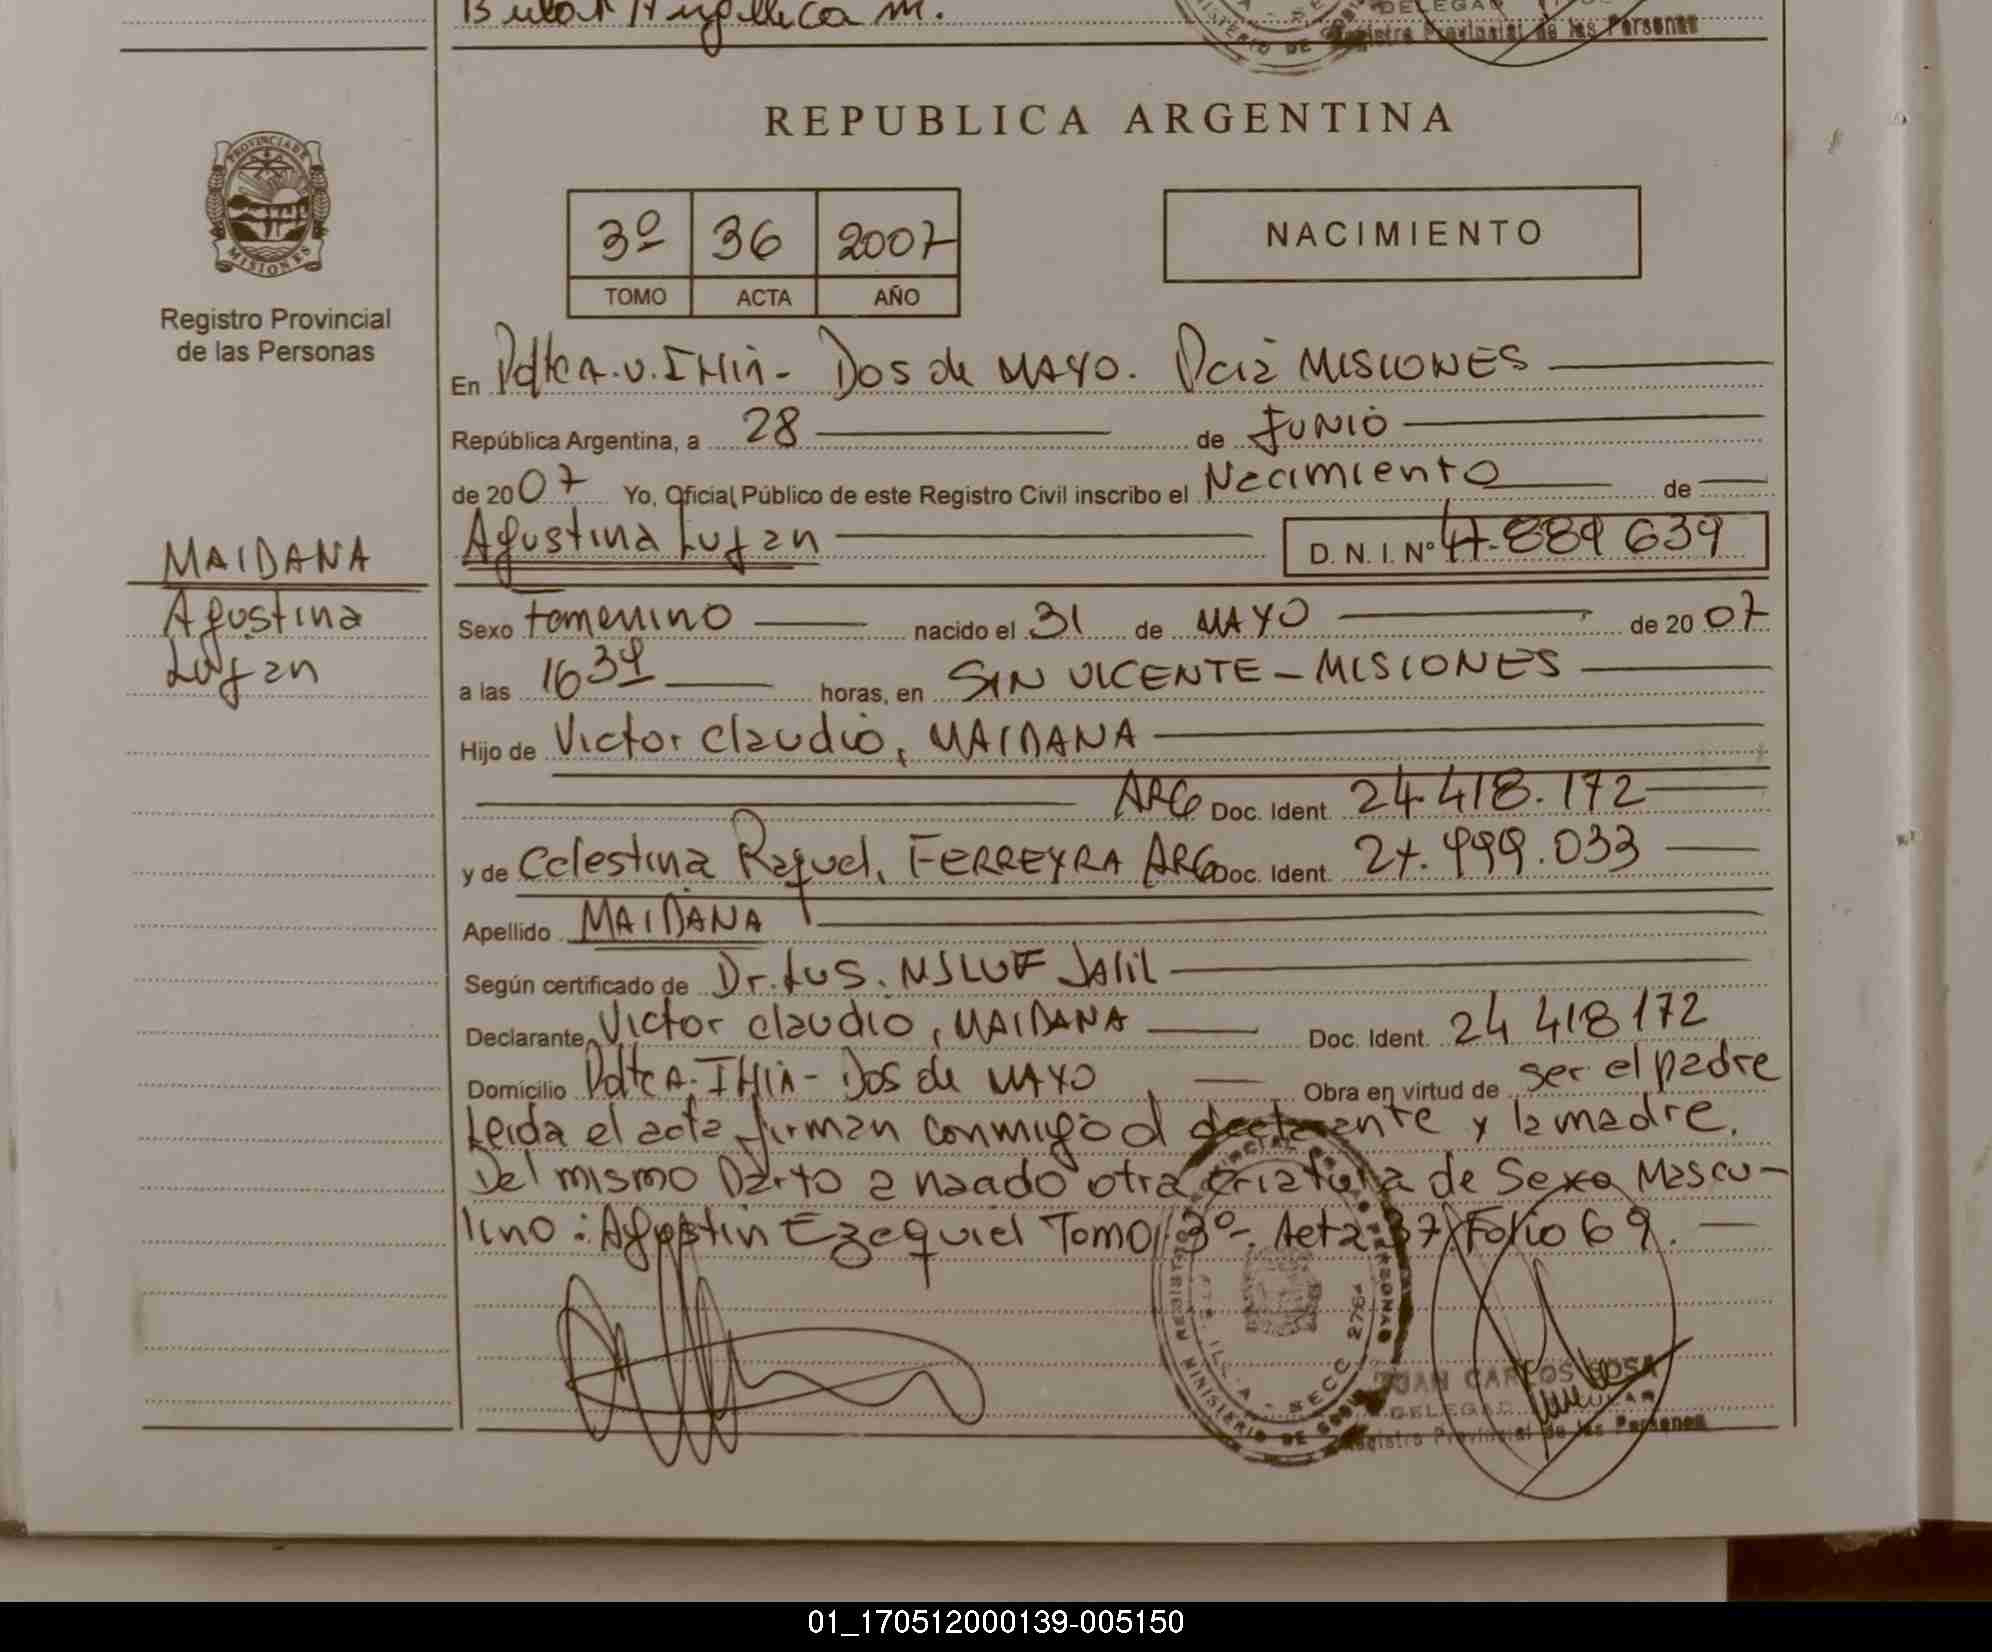 REPUBLICA ARGENTINA
PROVINCIA DE
MISIONES
Registro Provincial
de las Personas
3º 36 2007
TOMO ACTA AÑO
NACIMIENTO
En Pdte A. U. IHiA - Dos de MAYO. Pcia MISIONES
República Argentina, a 28 de JUNIO
de 2007 Yo, Oficial Público de este Registro Civil inscribo el Nacimiento de
Agustina Lujan D. N. I. Nº 47.889 639
MAIDANA
Agustina
Lujan
Sexo Femenino nacido el 31 de MAYO de 2007
a las 16 39 horas, en SAN VICENTE - MISIONES
Hijo de Victor Claudio, MAIDANA
ARG Doc. Ident. 24.418.172
y de Celestina Raquel, FERREYRA ARG Doc. Ident. 27.999.033
Apellido MAIDANA
Según certificado de Dr. Jalil
Declarante Victor Claudio, MAIDANA Doc. Ident. 24 418 172
Domicilio Pdte A. IHiA - Dos de MAYO Obra en virtud de ser el padre
Leida el acta firman conmigo el declarante y la madre.
Del mismo Parto a nacido otra criatura de Sexo Mascu-
lino: Agostin Ezequiel Tomo 3º - Acta 37 Folio 69.
JUAN CARLOS SOSA
DELEGADO TITULAR
Registro Provincial de las Personas
01_170512000139-005150